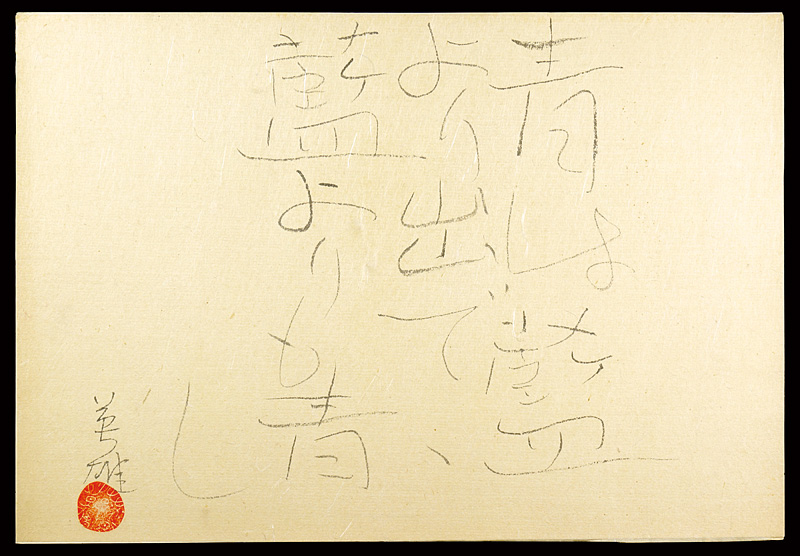 青は藍
より出で、
藍よりも青
し
英雄